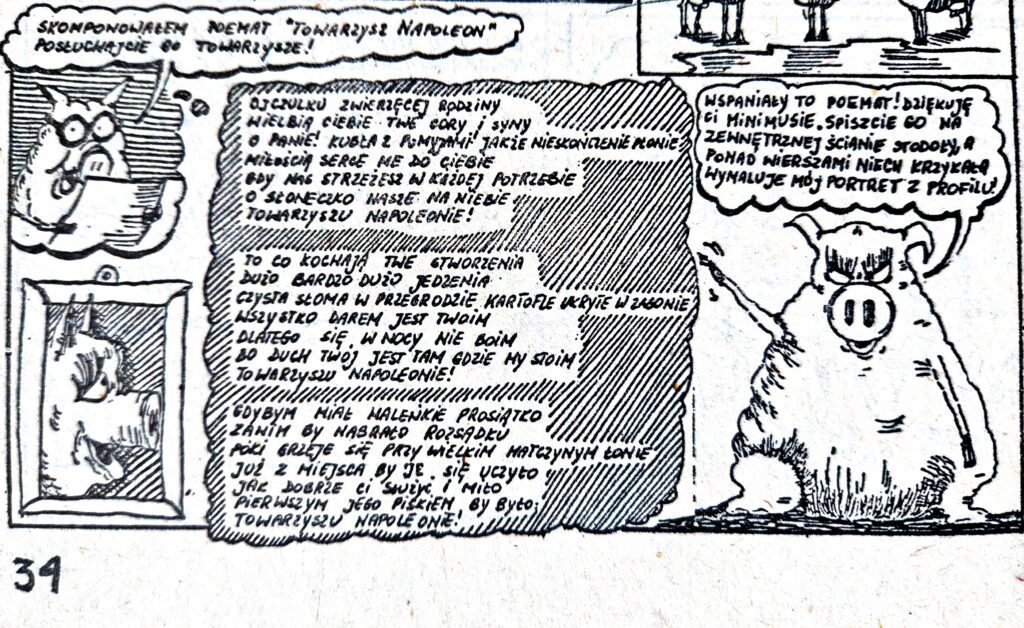 SKOMPONOWAŁEM POEMAT "TOWARZYSZ NAPOLEON"
POSŁUCHAJCIE GO TOWARZYSZE!
OJCZULKU ZWIERZĘCEJ RODZINY
WIELBIĄ CIEBIE TWE CÓRY I SYNY
O PANIE! KUBŁA Z POMYJAMI JAKŻE NIESKOŃCZENIE PŁONIE
MIŁOŚCIĄ SERCE ME DO CIEBIE
GDY NAS STRZEŻESZ W KAŻDEJ POTRZEBIE
O SŁONECZKO NASZE NA NIEBIE
TOWARZYSZU NAPOLEONIE!
TO CO KOCHAJĄ TWE STWORZENIA
DUŻO BARDZO DUŻO JEDZENIA
CZYSTA SŁOMA W PRZEGRODZIE, KARTOFLE UKRYTE W ZAGONIE
WSZYSTKO DAREM JEST TWOIM
DLATEGO SIĘ W NOCY NIE BOIM
BO DUCH TWÓJ JEST TAM GDZIE MY STOIM
TOWARZYSZU NAPOLEONIE!
GDYBYM MIAŁ MALEŃKIE PROSIĄTKO
ZANIM BY NABRAŁO ROZSĄDKU
PÓKI GRZEJE SIĘ PRZY WIELKIM MATCZYNYM ŁONIE
JUŻ Z MIEJSCA BY JE SIĘ UCZYŁO
JAK DOBRZE CI SŁUŻYĆ I MIŁO
PIERWSZYM JEGO PISKIEM BY BYŁO;
TOWARZYSZU NAPOLEONIE!
WSPANIAŁY TO POEMAT! DZIĘKUJĘ
CI MINIMUSIE. SPISZCIE GO NA
ZEWNĘTRZNEJ ŚCIANIE STODOŁY, A
PONAD WIERSZAMI NIECH KRZYKAŁA
WYMALUJE MÓJ PORTRET Z PROFILU!
34